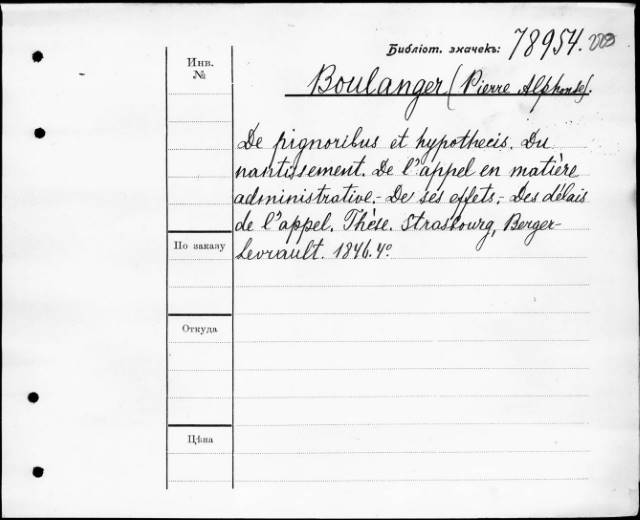 Библіот. значекъ: 78954.
Инв.
№
Boulanger (Pierre Alphonse).
De pignoribus et hypothecis. Du
nantissement. De l'appel en matière
administrative.- De ses effets,- Des délais
de l'appel. Thèse. Strasbourg, Berger-
Levrault. 1846. 4º
По заказу
Откуда
Цѣна